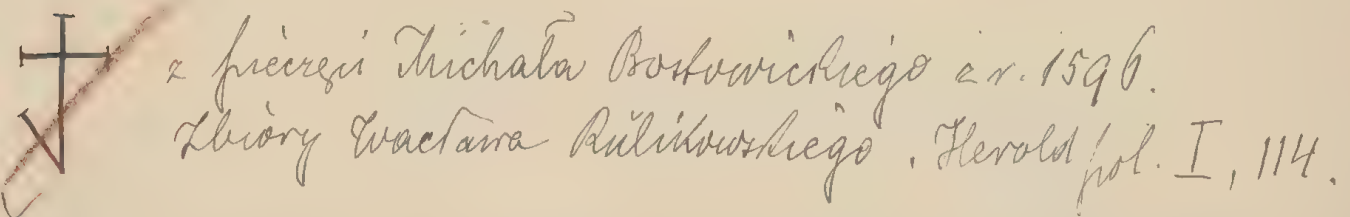 z pieczęci Michała Bostowickiego z r. 1596.
Zbiory Wacława Rulikowskiego. Herold pol. I, 114.